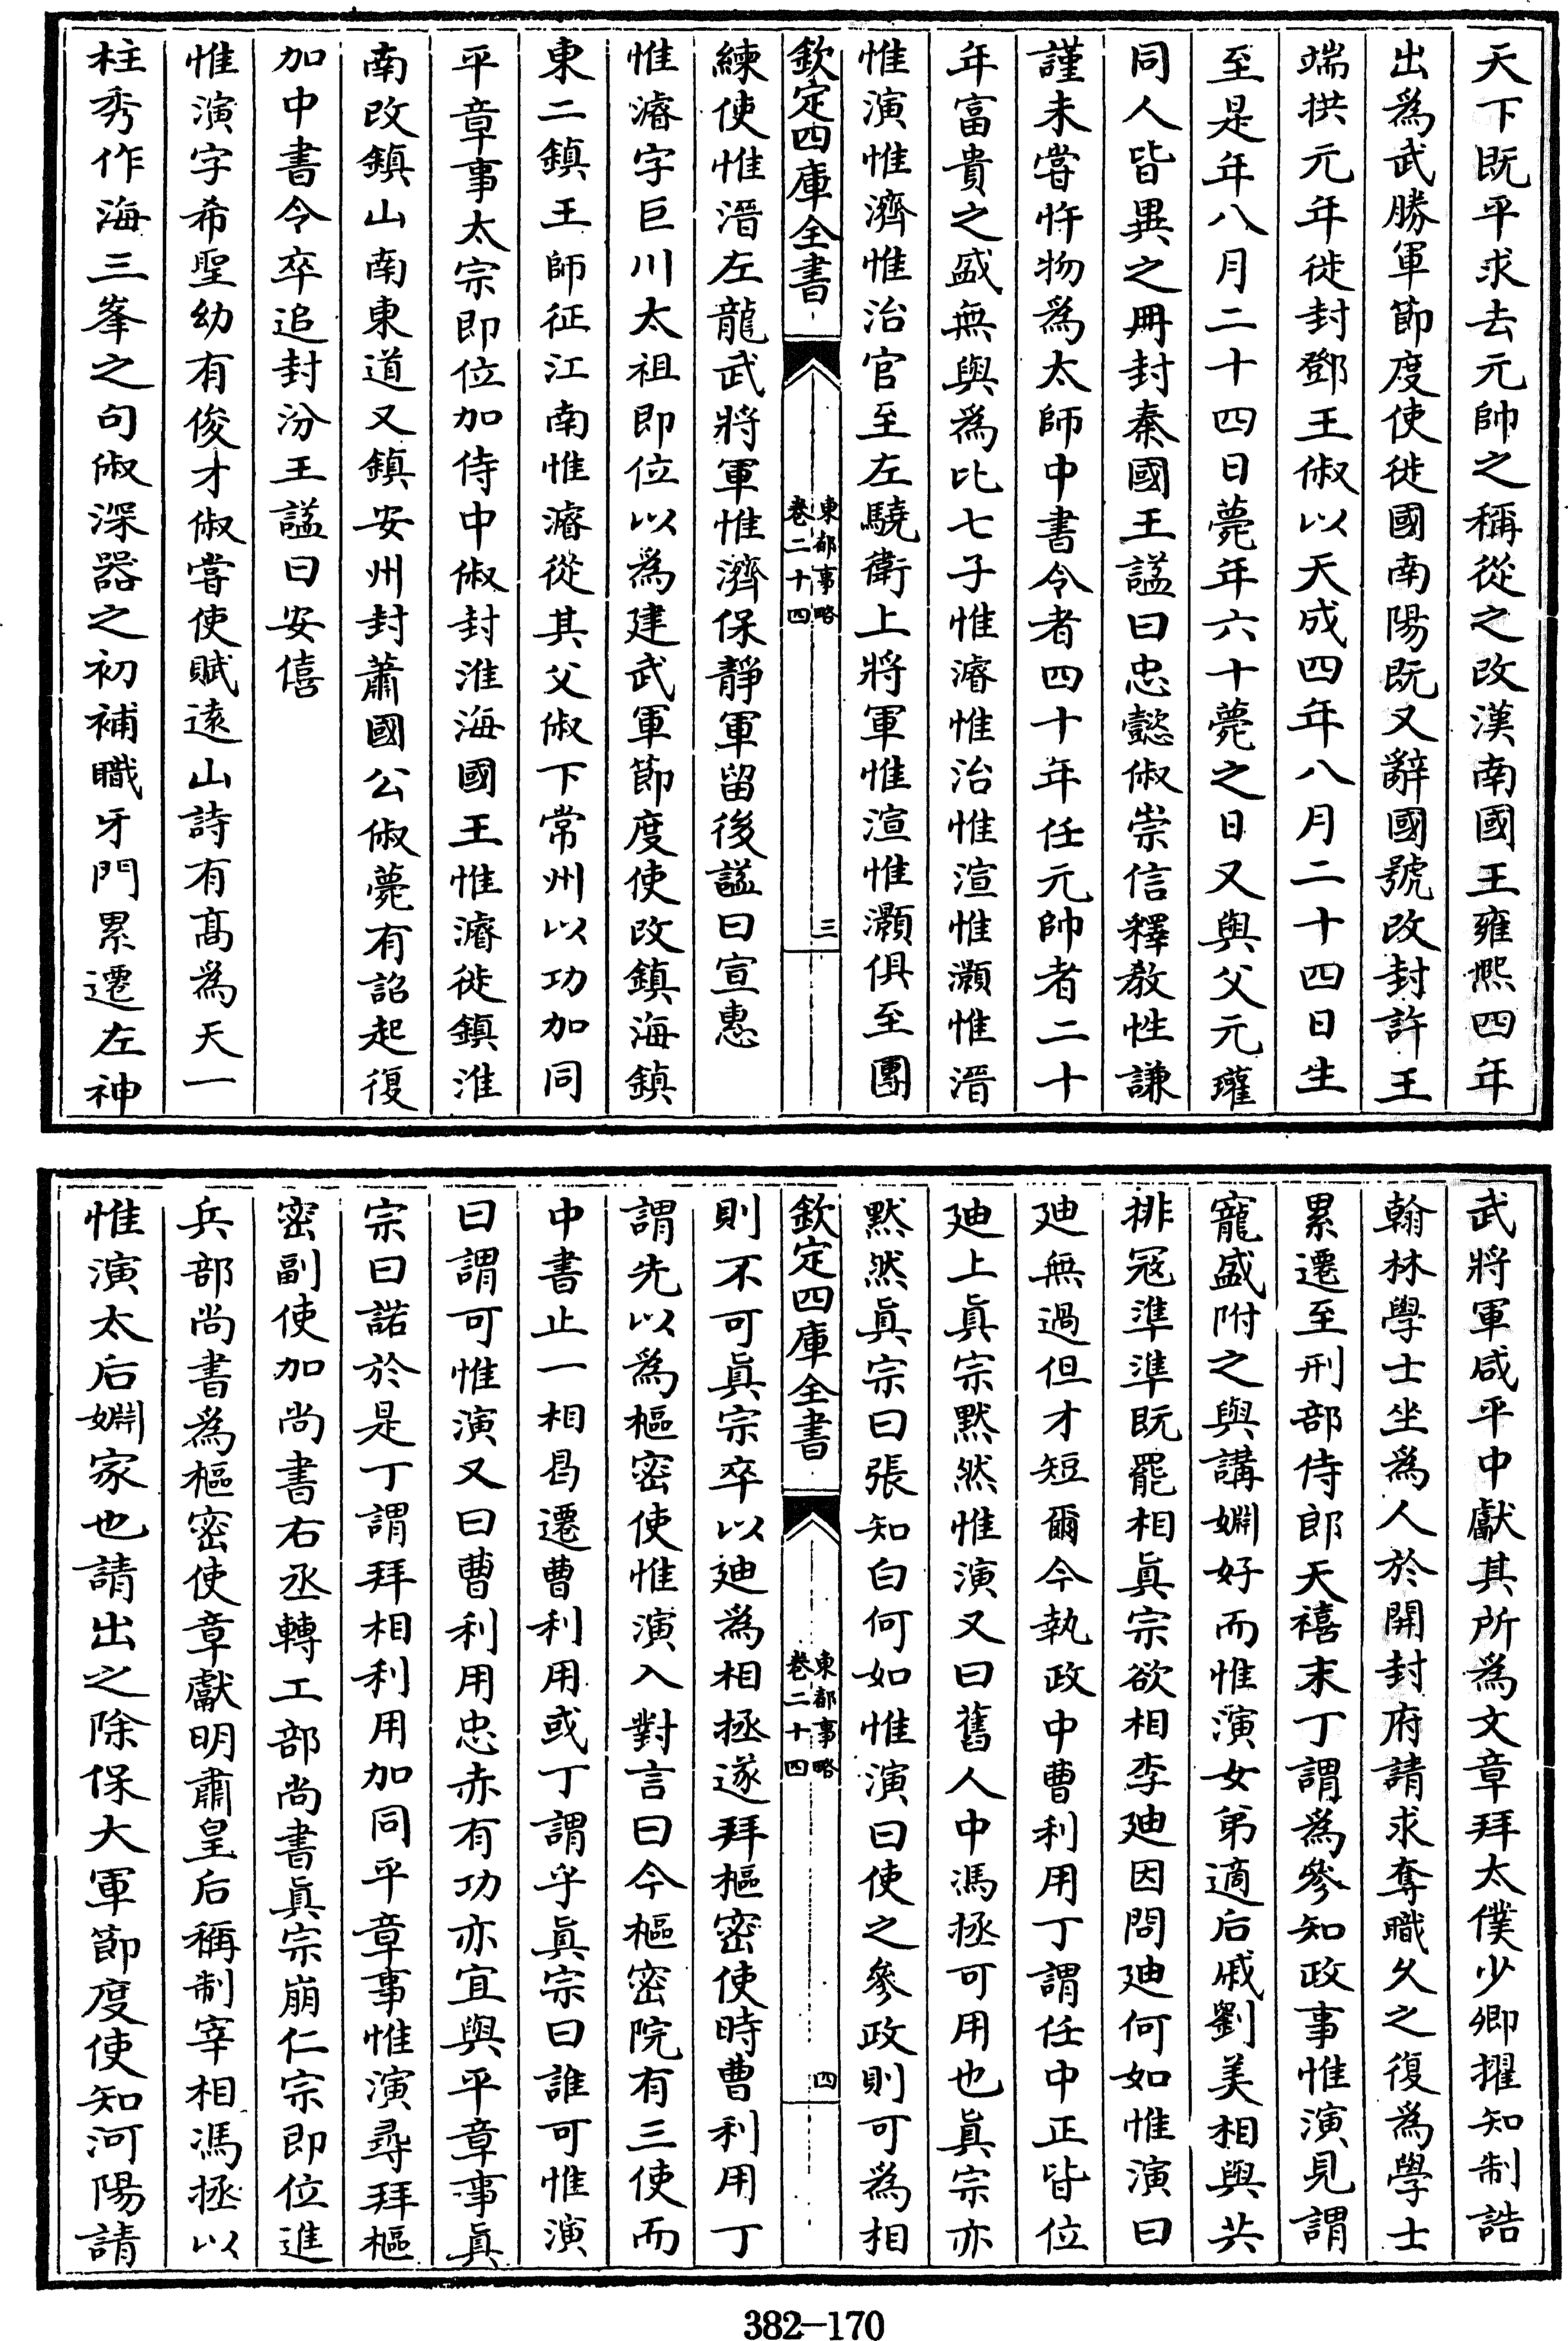 天下既平求去元帥之稱從之改漢南國王雍熙四年
出為武勝軍節度使徙國南陽既又辭國號改封許王
端拱元年徙封鄧王俶以天成四年八月二十四日生
至是年八月二十四日薨年六十薨之日又與父元瓘
同人皆異之冊封秦國王諡曰忠懿俶崇信釋教性謙
謹未嘗忤物為太師中書令者四十年任元帥者二十
年富貴之盛無與為比七子惟濬惟治惟渲惟灝惟溍
惟演惟濟惟治官至左驍衛上將軍惟渲惟灝俱至團
欽定四庫全書
東都事略
卷二十四
三
練使惟溍左龍武將軍惟濟保靜軍留後諡曰宣惠
惟濬字巨川太祖即位以為建武軍節度使改鎮海鎮
東二鎮王師征江南惟濬從其父俶下常州以功加同
平章事太宗即位加侍中俶封淮海國王惟濬徙鎮淮
南改鎮山南東道又鎮安州封蕭國公俶薨有詔起復
加中書令卒追封汾王諡曰安僖
惟演字希聖幼有俊才俶嘗使賦遠山詩有高為天一
柱秀作海三峯之句俶深器之初補職牙門累遷左神
武將軍咸平中獻其所為文章拜太僕少卿擢知制誥
翰林學士坐為人於開封府請求奪職久之復為學士
累遷至刑部侍郎天禧末丁謂為參知政事惟演見謂
寵盛附之與講婣好而惟演女弟適后戚劉美相與共
排冦準準既罷相真宗欲相李廸因問廸何如惟演曰
廸無過但才短爾今執政中曹利用丁謂任中正皆位
廸上真宗默然惟演又曰舊人中馮拯可用也真宗亦
默然真宗曰張知白何如惟演曰使之參政則可為相
欽定四庫全書
東都事略
卷二十四
四
則不可真宗卒以廸為相拯遂拜樞密使時曹利用丁
謂先以為樞密使惟演入對言曰今樞密院有三使而
中書止一相曷遷曹利用或丁謂乎真宗曰誰可惟演
曰謂可惟演又曰曹利用忠赤有功亦宜與平章事真
宗曰諾於是丁謂拜相利用加同平章事惟演尋拜樞
密副使加尚書右丞轉工部尚書真宗崩仁宗即位進
兵部尚書為樞密使章獻明肅皇后稱制宰相馮拯以
惟演太后婣家也請出之除保大軍節度使知河陽請
382-170